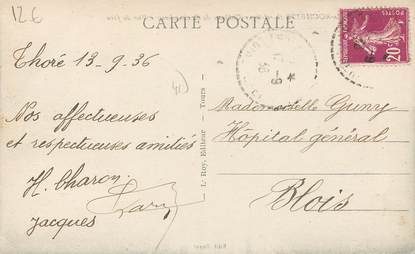 12 €
CARTE POSTALE
Thoré 13-9-36
Nos affectueuses
et respectueuses amitiés
H. Charon
Jacques
L. Roy, Editeur - Tours
POSTES
20c
Mademoiselle Guny
Hôpital général
Blois